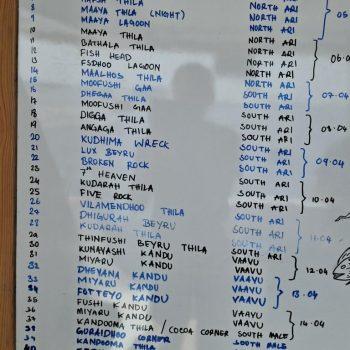 MAAYA THILA (NIGHT) NORTH ARI
9 MAAYA LAGOON NORTH ARI
10 MAAYA THILA NORTH ARI
11 BATHALA THILA NORTH ARI
12 FISH HEAD NORTH ARI 06.0
13 FSDHOO LAGOON NORTH ARI
14 MAALHOS THILA NORTH ARI
15 MOOFUSHI GAA NORTH ARI
16 DHEGAA THILA SOUTH ARI 07.04
17 MOOFUSHI GAA SOUTH ARI
18 DIGGA THILA SOUTH ARI
19 ANGAGA THILA SOUTH ARI
20 KUDHIMA WRECK SOUTH ARI
21 LUX BEYRU SOUTH ARI
22 BROKEN ROCK SOUTH ARI 09.04
23 7th HEAVEN SOUTH ARI
24 KUDARAH THILA SOUTH ARI
25 FIVE ROCK SOUTH ARI 10.04
26 VILAMENDHOO THILA SOUTH ARI
27 DHIGURAH BEYRU SOUTH ARI
28 KUDARAH THILA SOUTH ARI 11.04
29 THINFUSHI BEYRU THILA SOUTH ARI
30 KUNAVASHI KANDU VAAVU
31 MIYARU KANDU VAAVU 12.04
32 DHEVANA KANDU VAAVU
33 MIYARU KANDU VAAVU 13.04
34 FOTTEYO KANDU VAAVU
35 FUSHI KANDU VAAVU
36 MIYARU KANDU VAAVU 14.04
KANDOOMA THILA / COCOA CORNER SOUTH MALE
GURAIDHOO CORNER SOUTH MALE
KANDOOMA THILA SOUTH